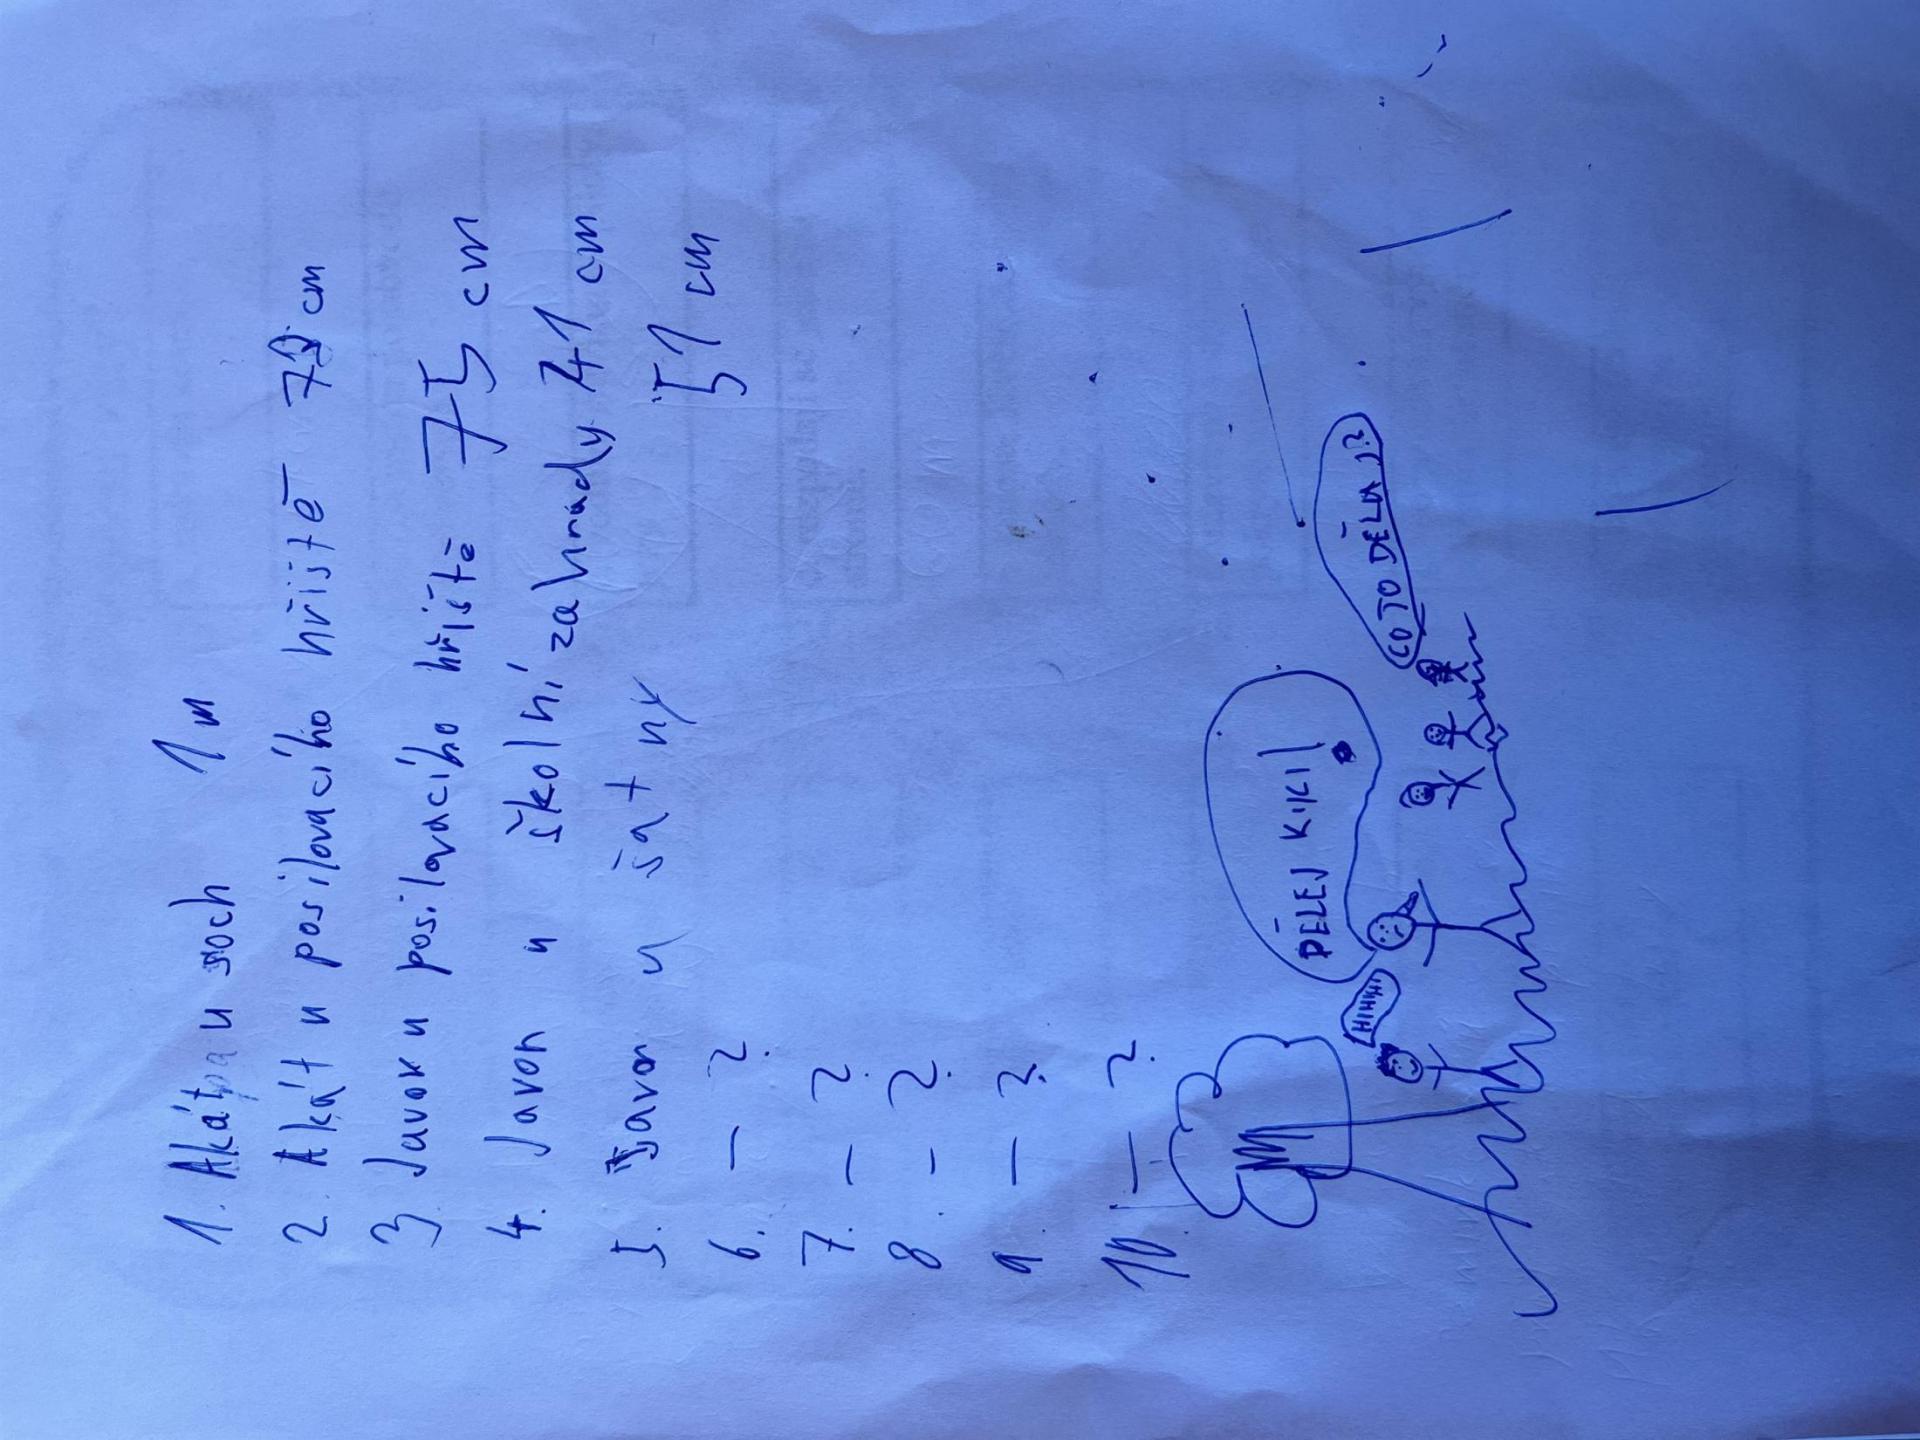 1. Akát u soch 1 m
2. Akát u posilovacího hřiště 72 cm
3. Javor u posilovacího hřiště 75 cm
4. Javor u školní zahrady 41 cm
5. Javor u šatny 51 cm
6. - ?
7. - ?
8. - ?
9. - ?
10. - ?
DĚLEJ KIKI!
HIHIHI
CO TO DĚLAJ?